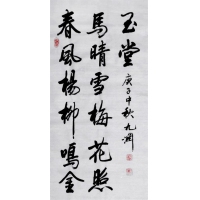 春風楊柳鳴金
馬晴雪梅花照
玉堂
庚子中秋九渊